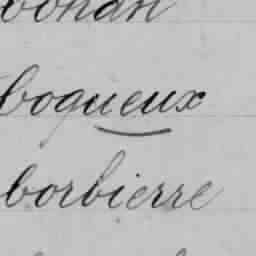 bohan
boqueux
borbierre